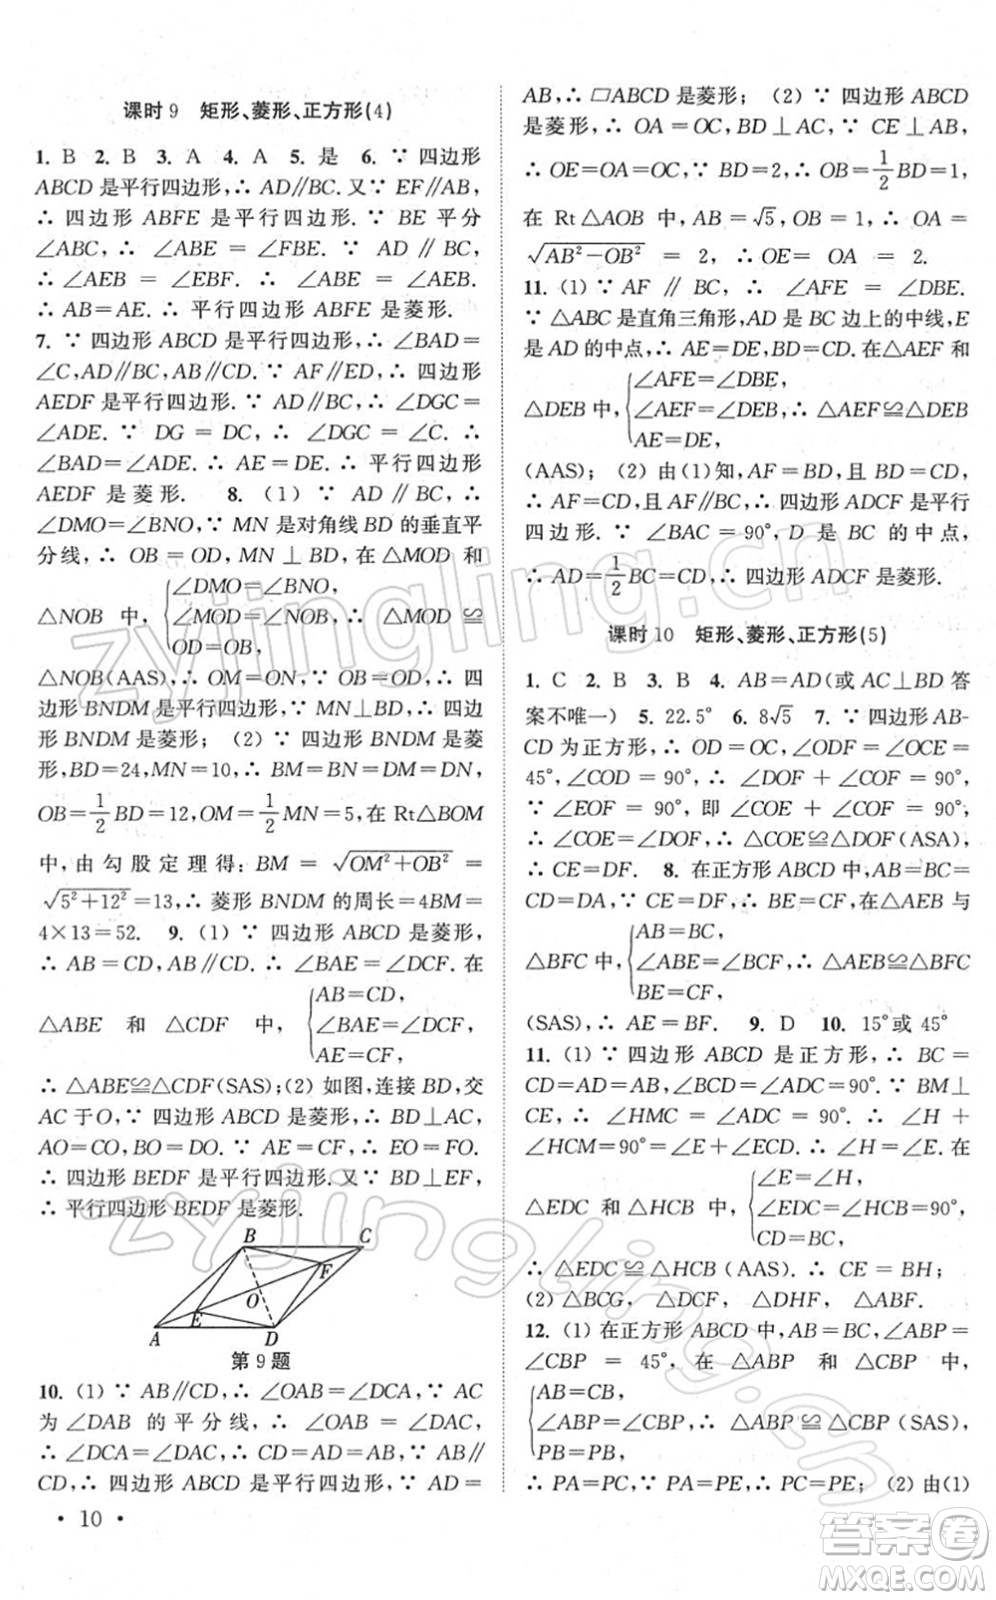 课时9　矩形、菱形、正方形(4)
1. B　2. B　3. A　4. A　5. 是　6. ∵ 四边形
ABCD 是平行四边形,∴ AD∥BC. 又∵ EF∥AB,
∴ 四边形 ABFE 是平行四边形. ∵ BE 平分
∠ABC, ∴ ∠ABE = ∠FBE. ∵ AD ∥ BC,
∴ ∠AEB = ∠EBF. ∴ ∠ABE = ∠AEB.
∴ AB=AE. ∴ 平行四边形 ABFE 是菱形.
7. ∵ 四边形 ABCD 是平行四边形,∴ ∠BAD=
∠C,AD∥BC. ∵ AF∥ED,∴ 四边形
AEDF 是平行四边形. ∵ AD∥BC,∴ ∠DGC=
∠ADE. ∵ DG = DC, ∴ ∠DGC = ∠C. ∴
∠BAD=∠ADE. ∴ AE=DE. ∴ 平行四边形
AEDF 是菱形.　8. (1) ∵ AD ∥ BC, ∴
∠DMO=∠BNO,∵ MN 是对角线 BD 的垂直平
分线,∴ OB=OD,MN⊥BD,在△MOD 和
△NOB 中,{∠DMO=∠BNO,
∠MOD=∠NOB, ∴ △MOD ≌
OD=OB,
△NOB(AAS),∴ OM=ON,∵ OB=OD,∴ 四
边形 BNDM 是平行四边形,∵ MN⊥BD,∴ 四边
形 BNDM 是菱形；(2) ∵ 四边形 BNDM 是菱
形,BD=24,MN=10,∴ BM=BN=DM=DN,
OB=1/2 BD=12,OM=1/2 MN=5,在 Rt△BOM
中,由勾股定理得:BM = √(OM²+OB²) =
√(5²+12²)=13,∴ 菱形 BNDM 的周长=4BM=
4×13=52.　9. (1) ∵ 四边形 ABCD 是菱形,
∴ AB=CD,AB∥CD,∴ ∠BAE=∠DCF. 在
△ABE 和 △CDF 中,{AB=CD,
∠BAE=∠DCF,
AE=CF,
∴ △ABE≌△CDF(SAS)；(2) 如图,连接 BD,交
AC 于 O,∵ 四边形 ABCD 是菱形,∴ BD⊥AC,
AO=CO,BO=DO. ∵ AE=CF,∴ EO=FO.
∴ 四边形 BEDF 是平行四边形. ∵ BD⊥EF,
∴ 平行四边形 BEDF 是菱形.
B　C
F
O
E
A　D
第 9 题
10. (1) ∵ AB∥CD,∴ ∠OAB=∠DCA,∵ AC
为∠DAB 的平分线,∴ ∠OAB = ∠DAC,
∴ ∠DCA=∠DAC,∴ CD=AD=AB,∵ AB∥
CD,∴ 四边形 ABCD 是平行四边形,∵ AD =
• 10 •
AB,∴ □ABCD 是菱形；(2) ∵ 四边形 ABCD
是菱形,∴ OA=OC,BD⊥AC,∵ CE⊥AB,
∴ OE=OA=OC,∵ BD=2,∴ OB=1/2 BD=1,
在 Rt△AOB 中,AB=√5,OB=1,∴ OA=
√(AB²−OB²) = 2, ∴ OE= OA = 2.
11. (1) ∵ AF ∥ BC, ∴ ∠AFE = ∠DBE.
∵ △ABC 是直角三角形,AD 是 BC 边上的中线,E
是 AD 的中点,∴ AE=DE,BD=CD. 在△AEF 和
△DEB 中,{∠AFE=∠DBE,
∠AEF=∠DEB,∴ △AEF≌△DEB
AE=DE,
(AAS)；(2) 由(1)知,AF=BD,且 BD=CD,
∴ AF=CD,且 AF∥BC,∴ 四边形 ADCF 是平行
四边形. ∵ ∠BAC=90°,D 是 BC 的中点,
∴ AD=1/2 BC=CD,∴ 四边形 ADCF 是菱形.
课时10　矩形、菱形、正方形(5)
1. C　2. B　3. B　4. AB=AD(或 AC⊥BD 答
案不唯一)　5. 22.5°　6. 8√5　7. ∵ 四边形 AB-
CD 为正方形,∴ OD=OC,∠ODF=∠OCE=
45°,∠COD = 90°, ∴ ∠DOF + ∠COF = 90°,
∵ ∠EOF = 90°,即 ∠COE + ∠COF = 90°,
∴ ∠COE=∠DOF,∴ △COE≌△DOF(ASA),
∴ CE=DF.　8. 在正方形 ABCD 中,AB=BC=
CD=DA,∵ CE=DF,∴ BE=CF,在△AEB 与
△BFC 中,{AB=BC,
∠ABE=∠BCF,∴ △AEB≌△BFC
BE=CF,
(SAS),∴ AE=BF.　9. D　10. 15°或 45°
11. (1) ∵ 四边形 ABCD 是正方形,∴ BC=
CD=AD=AB,∠BCD=∠ADC=90°. ∵ BM⊥
CE,∴ ∠HMC = ∠ADC = 90°. ∴ ∠H +
∠HCM=90°=∠E+∠ECD. ∴ ∠H=∠E. 在
△EDC 和△HCB 中,{∠E=∠H,
∠EDC=∠HCB=90°,
CD=BC,
∴ △EDC ≌ △HCB (AAS). ∴ CE = BH；
(2) △BCG, △DCF, △DHF, △ABF.
12. (1) 在正方形 ABCD 中,AB=BC,∠ABP=
∠CBP = 45°, 在 △ABP 和 △CBP 中,
{AB=CB,
∠ABP=∠CBP,∴ △ABP ≌ △CBP (SAS),
PB=PB,
∴ PA=PC,∵ PA=PE,∴ PC=PE；(2) 由(1)
zyjingling.cn
zyjingling.cn
答案圈
MXQE.COM